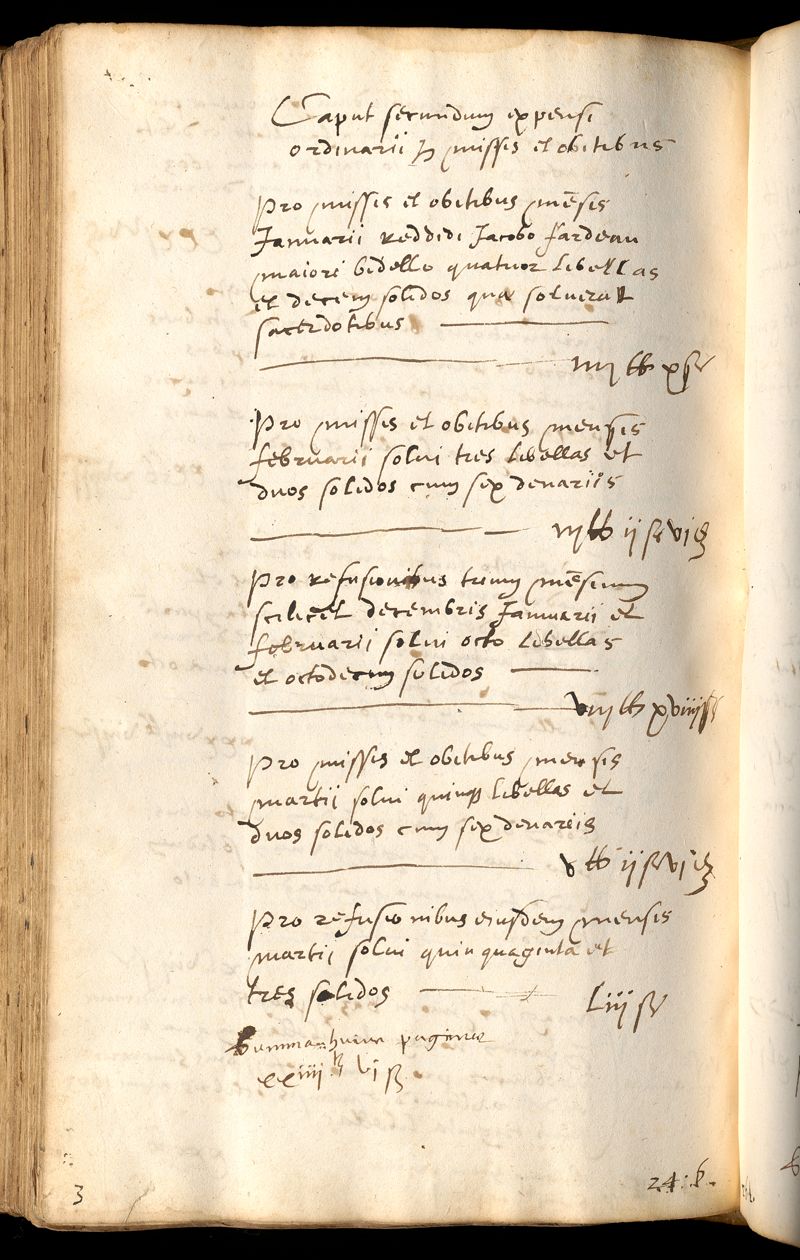 Caput secundum expensi
ordinarii p missis et obitibus
Pro missis et obitibus mēsis
Januarii reddidi Jacobo fardeau
maiori bidello quatuor libellas
et decem solidos quæ soluerat
sacerdotibus
iiij ℔ x ß
Pro missis et obitibus mensis
februarii solui tres libellas et
duos solidos cum sex denariis
iij ℔ ij ß vi δ
Pro refusionibus trium mēsium
scilicet decembris Januarii et
februarii solui octo libellas
et octodecim solidos
viij ℔ xviij ß
Pro missis et obitibus mensis
martii solui quinq libellas et
duos solidos cum sex denariis
v ℔ ij ß vi δ
Pro refusionibus eiusdem mensis
martii solui quinquaginta et
tres solidos
Liij ß
Summa huius paginæ
xxiiij ℔ vi ß
3
24: 6.